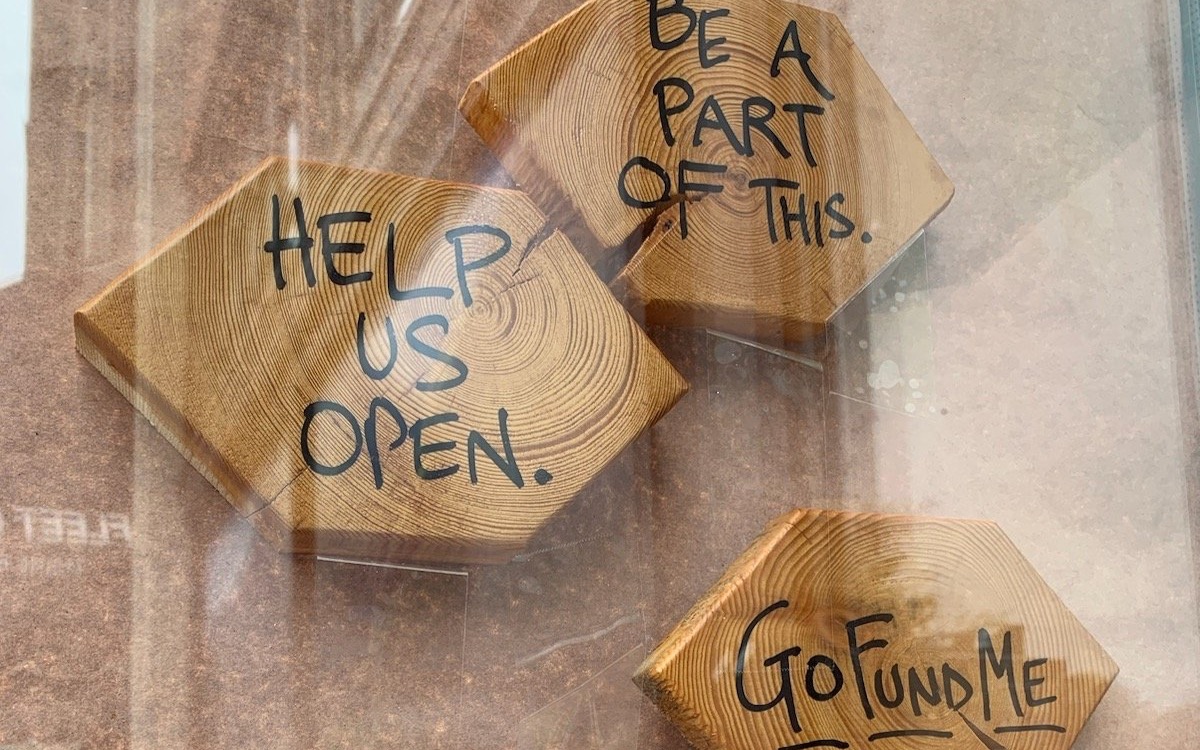 BE A
PART
OF THIS.
HELP
US
OPEN.
GOFUNDME
FLEET